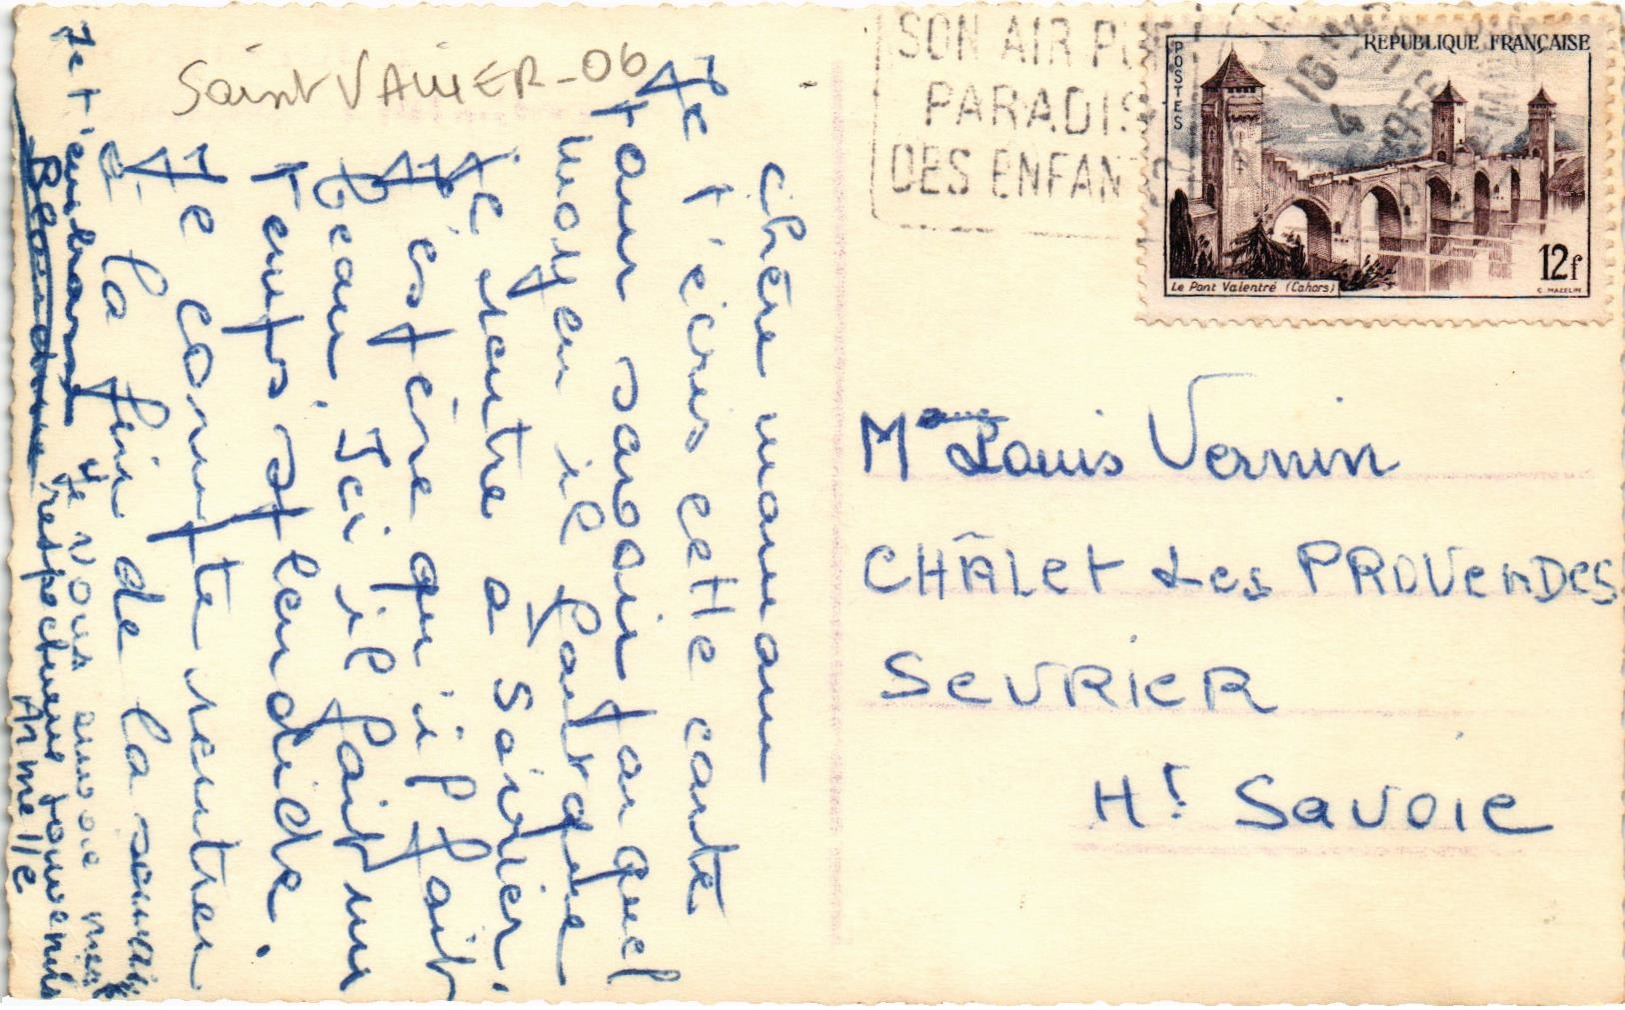 Saint VALLIER-06
Chère maman
Je t'écris cette carte
pour savoir par quel
moyen il faut que
je rentre a Sévrier.
J'espère qu'il fait
beau. Ici il fait un
temps splendide.
Je compte rentrer
à la fin de la semaine
Je t'embrasse
Je vous envoie mes
respectueux souvenirs
Armelle
SON AIR PUR
PARADIS
DES ENFANTS
16
4
1956
REPUBLIQUE FRANÇAISE
POSTES
12f
Le Pont Valentré (Cahors)
C. MAZELIN
Mame Louis Vernin
CHÂLet Les PROVenDes
SeVRIeR
Hte SavoIe